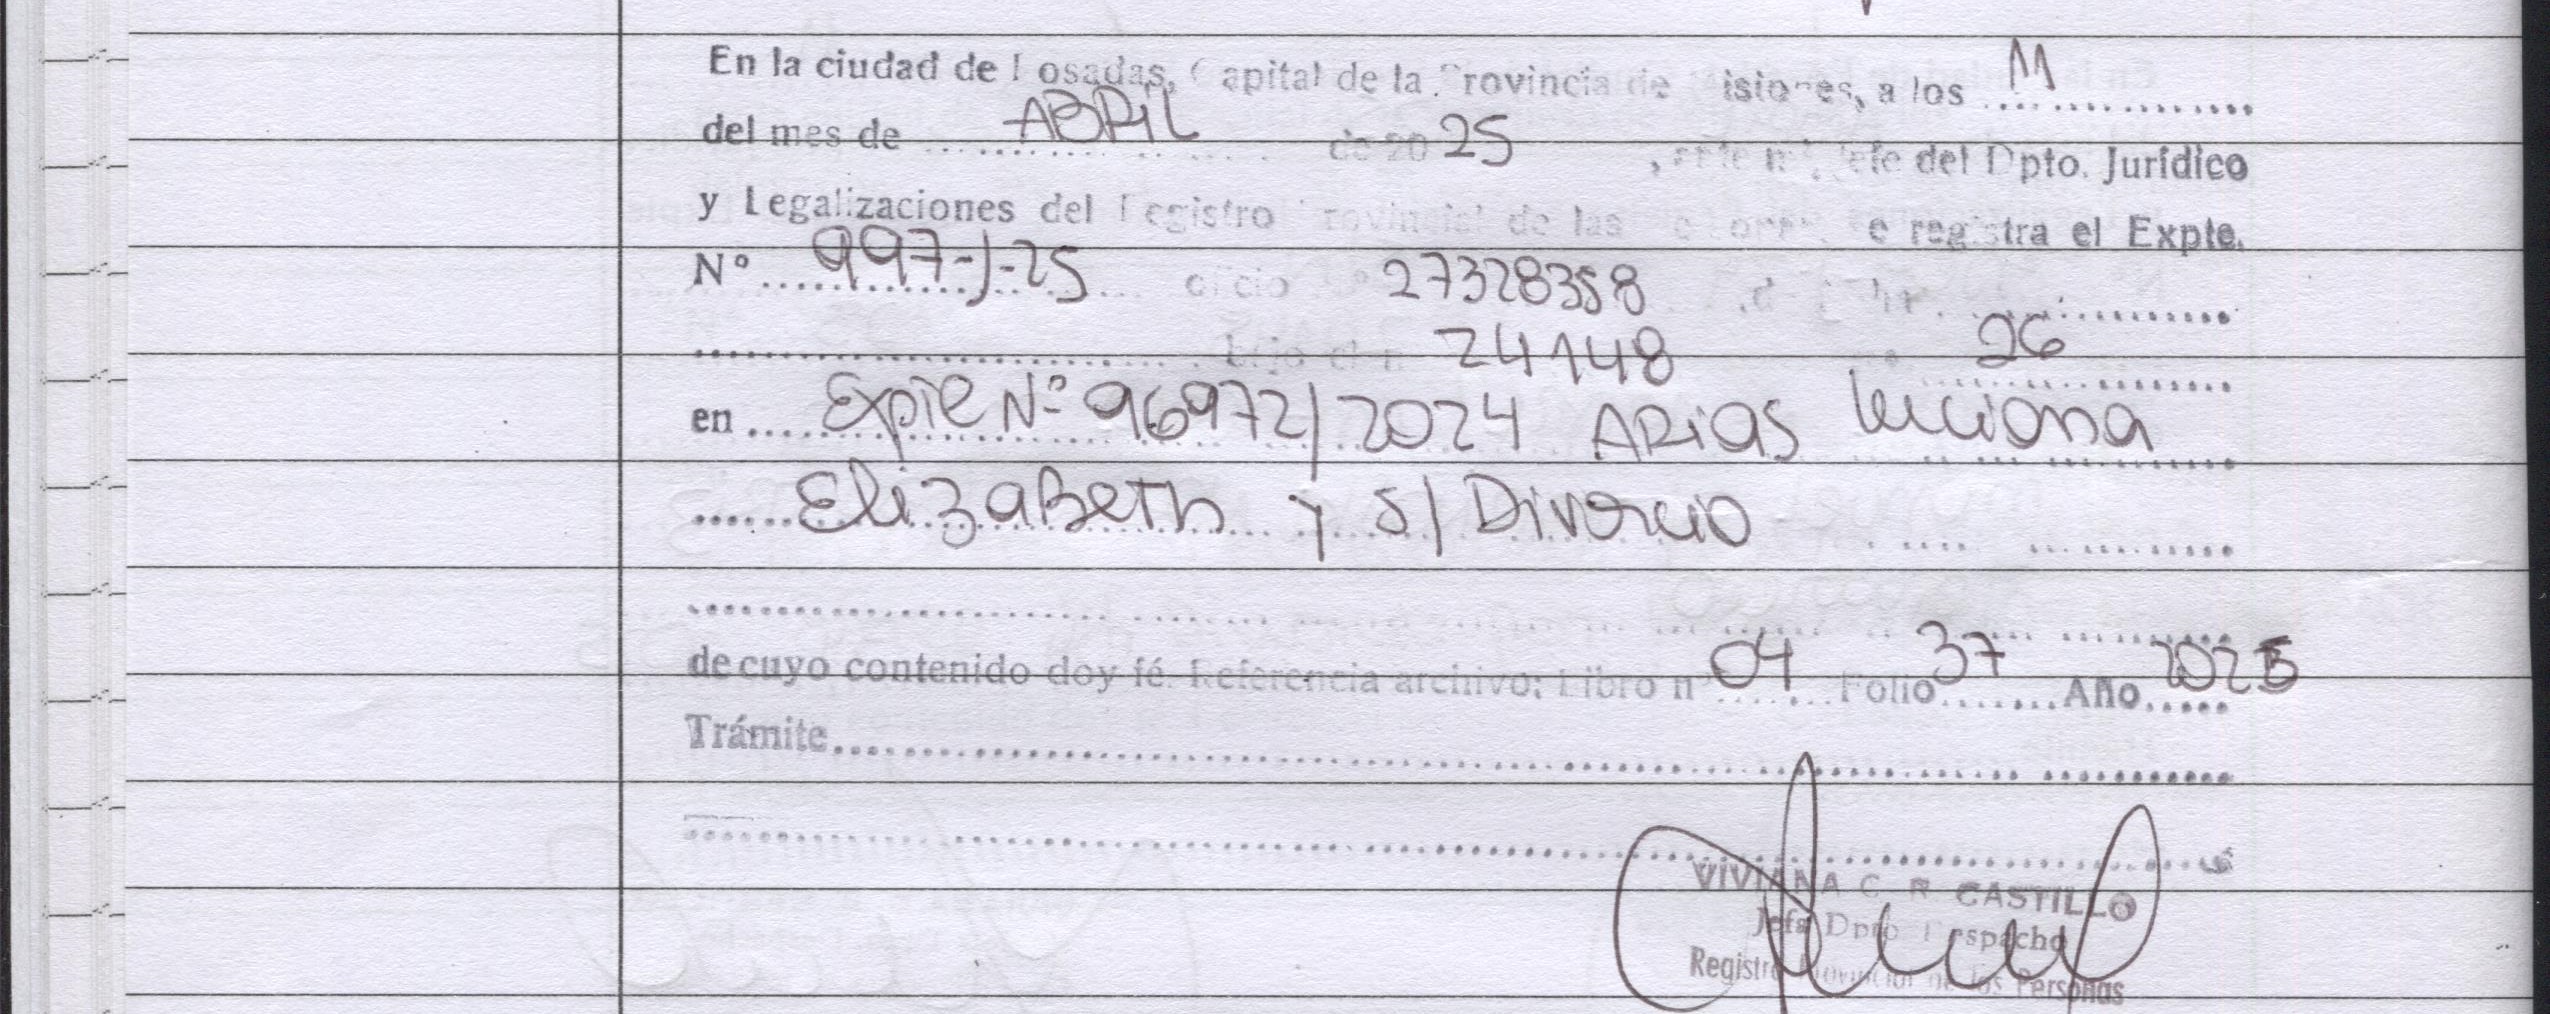 En la ciudad de Posadas, Capital de la Provincia de Misiones, a los 11
del mes de ABRIL de 2025, ante mi Jefe del Dpto. Jurídico
y Legalizaciones del Registro Provincial de las Personas se registra el Expte.
Nº 997-J-25 oficio 27328358
bajo el nº 24148 26
en Expte Nº 96972/2024 ARIAS luciana
ElizaBeth y s/ Divorcio
de cuyo contenido doy fé. Referencia archivo: Libro nº 04 Folio 37 Año 2025
Trámite
VIVIANA C. R. CASTILLO
Jefa Dpto. Despacho
Registro Provincial de las Personas